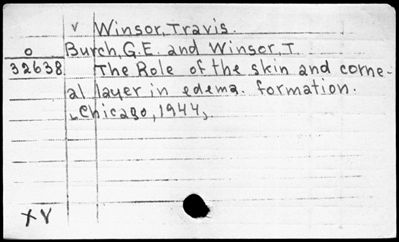 v Winsor, Travis.
o Burch, G.E. and Winsor, T.
32638 The Role of the skin and corne-
al layer in edema. formation.
Chicago, 1944,
XV